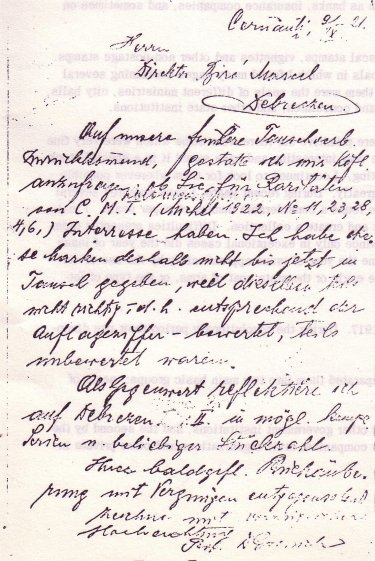 Cernăuți, 9/IX 21.
Herrn
Direktor Biró Marcel
Debreczen
Auf unsere frühere Tauschverb.
zurückkommend, gestatte ich mir höfl.
anzufragen, ob Sie für Raritäten
von C. M. T. (Michel 1922, No 11, 23, 28,
4, 6,) Interresse haben. Ich habe die-
se Marken deshalb nicht bis jetzt in
Tausch gegeben, weil dieselben teils
nicht richtig - d. h. entsprechend der
Auflageziffer - bewertet, teils
unbewertet waren.
Als Gegenwert reflektiere ich
auf Debreczen I II in mögl.
Serien in beliebiger Stückzahl
Ihrer baldgefl. Rückäube-
rung mit Vergnügen entgegensehend
zeichne mit
Hochachtung